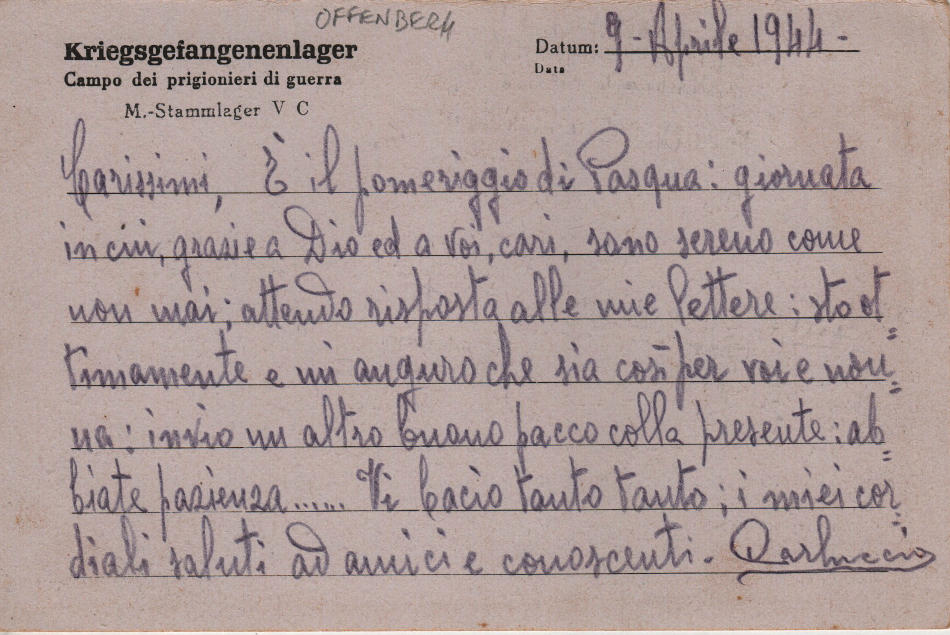 OFFENBERG
Kriegsgefangenenlager
Campo dei prigionieri di guerra
M.-Stammlager V C
Datum: 9 - Aprile 1944 -
Data
Carissimi, È il pomeriggio di Pasqua: giornata
in cui, grazie a Dio ed a voi, cari, sono sereno come
non mai; attendo risposta alle mie lettere: sto ot=
timamente e mi auguro che sia così per voi e non=
na: invio un altro buono pacco colla presente: ab=
biate pazienza...... Vi bacio tanto tanto; i miei cor=
diali saluti ad amici e conoscenti. Carluccio